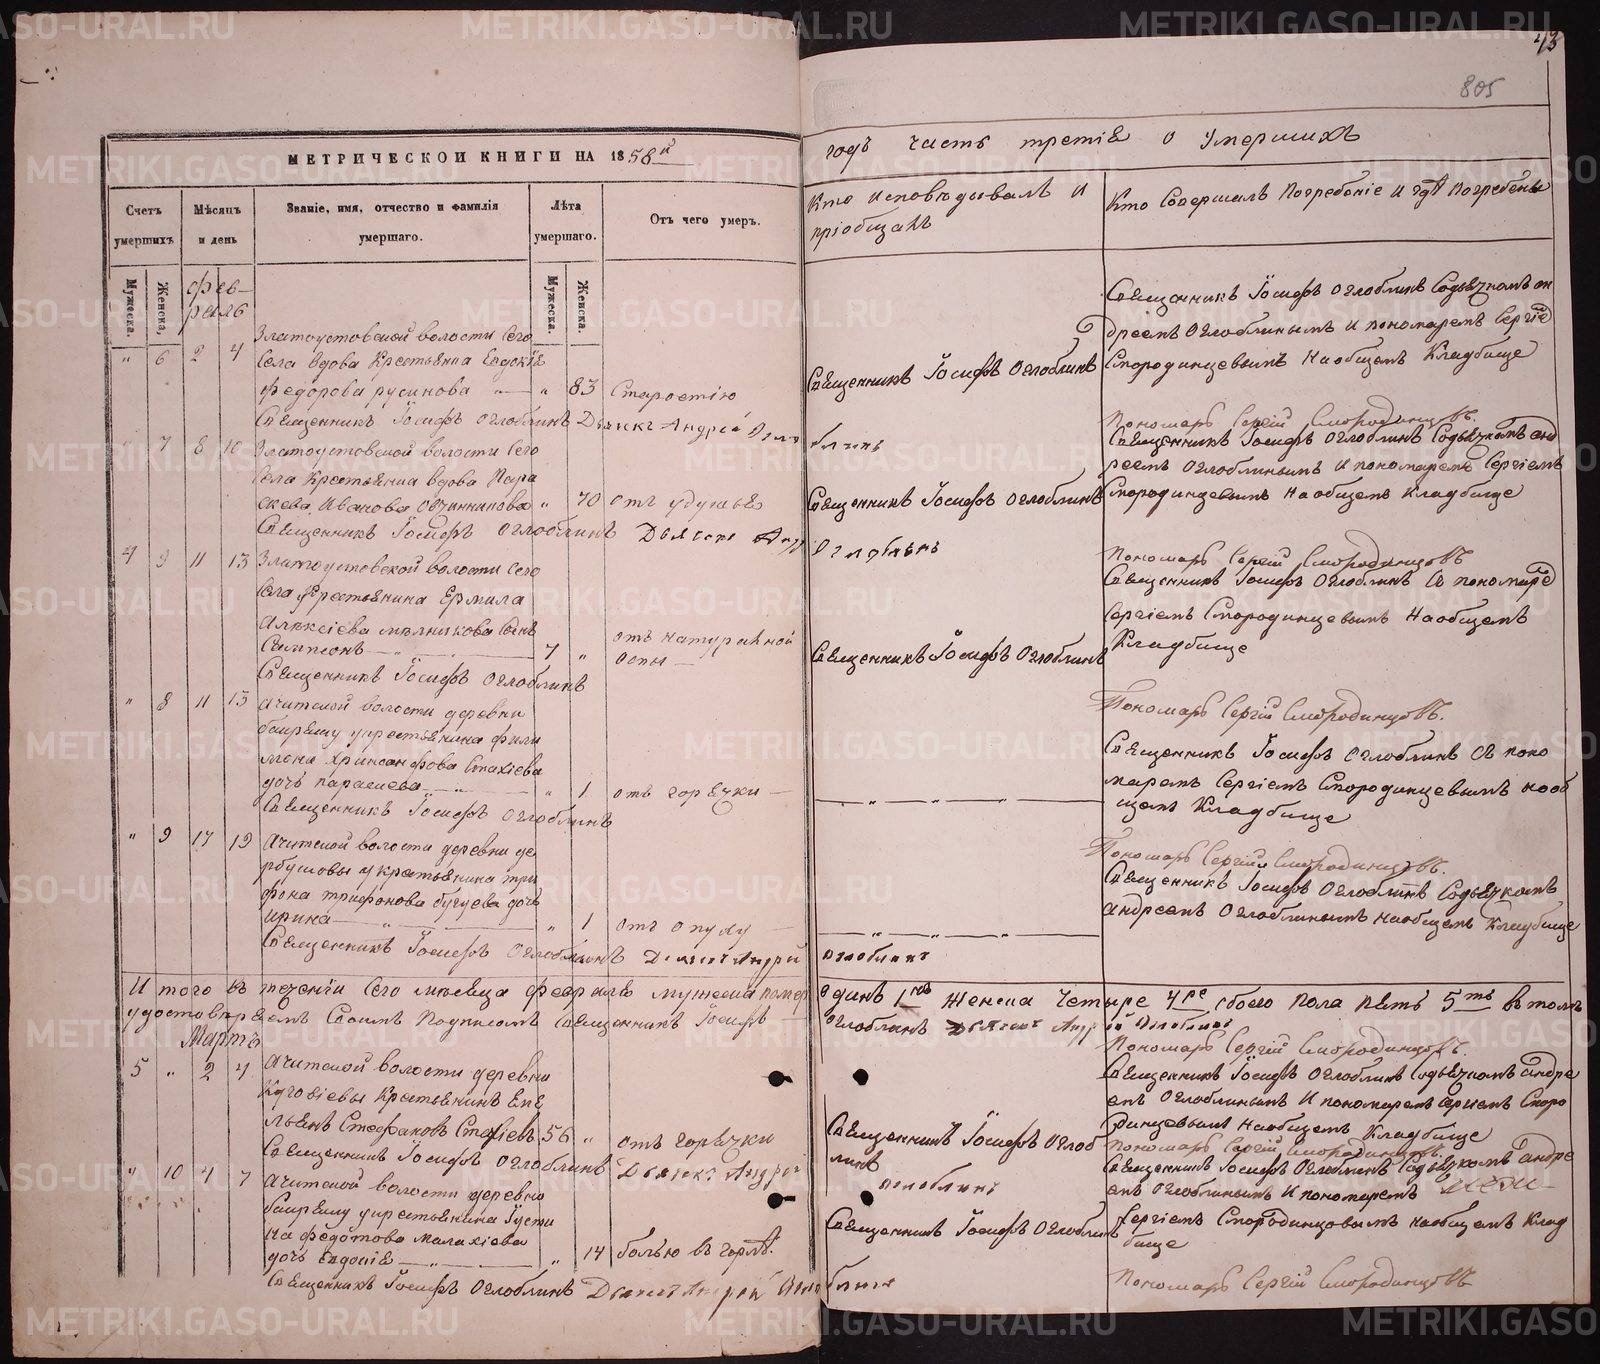 METRIKI.GASO-URAL.RU
43
805
МЕТРИЧЕСКОЙ КНИГИ НА 1858й
годъ часть третіѣ о умершихъ
Счетъ умершихъ
Мѣсяцъ и день
Званіе, имя, отчество и фамилія умершаго.
Лѣта умершаго.
Отъ чего умеръ.
Кто исповѣдывалъ и пріобщалъ
Кто Совершалъ Погребеніе и гдѣ погребены
Мужеска.
Женска,
Мужеска.
Женска.
Фев-
раль
" 6 2 4
Златоустовской волости Сего
Села вдова Крестьянка Евдокіѣ
Федорова русинова — " 83 Старостію
Священникъ Іосифъ Оглоблинъ
Священникъ Іосифъ Оглоблинъ Содьячкомъ ан
дреемъ Оглоблинымъ и пономаремъ Сергіе
Смородинцевымъ На общемъ Кладбище
Священникъ Іосифъ Оглоблинъ Дьячекъ Андрей Огло
блинъ
Пономарь Сергій Смородинцовъ.
" 7 8 10
Златоустовской волости Сего
Села Крестьянка вдова Пара
скева Иванова Овчинникова " 70 отъ удушья
Священникъ Іосифъ Оглоблинъ
Священникъ Іосифъ Оглоблинъ Содьячкомъ анд
реемъ Оглоблинымъ и пономаремъ Сергіемъ
Смородинцевымъ На общемъ Кладбище
Священникъ Іосифъ Оглоблинъ Дьячекъ Андр
Оглоблинъ
Пономарь Сергій Смородинцовъ
4 " 11 13
Златоустовской волости Сего
Села уКрестьянина Ермила
Алексіева мѣлникова Сынъ
Сампсонъ — " — 7 " отъ натуральной
оспы —
Священникъ Іосифъ Оглоблинъ
Священникъ Іосифъ Оглоблинъ Съ пономаре
Сергіемъ Смородинцевымъ На общемъ
Кладбище
Священникъ Іосифъ Оглоблинъ
Пономарь Сергій Смородинцовъ.
" 8 11 13
Ачитской волости деревни
укрестьянина Фили
мона Хрисанфова Стахіева
дочь параскева — " 1 отъ горѣчки —
— " — " — " —
Священникъ Іосифъ Оглоблинъ Съ поно
маремъ Сергіемъ Смородинцевымъ на об
щемъ Кладбище
Священникъ Іосифъ Оглоблинъ
Пономарь Сергій Смородинцовъ.
" 9 17 19
Ачитской волости деревни де
рбушовы укрестьянина три
фона трифонова бугуева дочь
ирина — " — " 1 отъ опуху —
— " — " — " —
Священникъ Іосифъ Оглоблинъ Содьячкомъ
андреемъ Оглоблинымъ На общемъ Кладбище
Священникъ Іосифъ Оглоблинъ Дьячекъ Андрей
Оглоблинъ
Итого въ теченіи Сего мѣсяца февралѣ мужеска помер
одинъ 1нъ женска четыре 4ре обоего пола пѣть 5ть в томъ
удостоверяемъ Своимъ Подписомъ Священникъ Іосифъ
Оглоблинъ Дьячекъ Андрей Оглоблинъ
Пономарь Сергій Смородинцовъ.
Мартъ
5 " 2 4
Ачитской волости деревни
Крестьянинъ Еме
льянъ Стефановъ Стахіевъ 56 " отъ горѣчки
Священникъ Іосифъ Оглоб
линъ
Священникъ Іосифъ Оглоблинъ Содьячкомъ андре
емъ Оглоблинымъ и пономаремъ сергиемъ Сморо
динцевымъ На общемъ Кладбище
Священникъ Іосифъ Оглоблинъ Дьячекъ Андрей
Оглоблинъ
Пономарь Сергій Смородинцовъ.
" 10 4 7
Ачитской волости деревни
укрестьянина Іусти
на Федотова малахіева
дочь Евдокіѣ — " — " 14 болью въ горлѣ.
Священникъ Іосифъ Оглоблинъ
Священникъ Іосифъ Оглоблинъ Содьячкомъ андре
емъ Оглоблинымъ и пономаремъ
Сергіемъ Смородинцовымъ на общемъ Клад
бище
Священникъ Іосифъ Оглоблинъ Дьячекъ Андрей Огло
блинъ
Пономарь Сергій Смородинцовъ